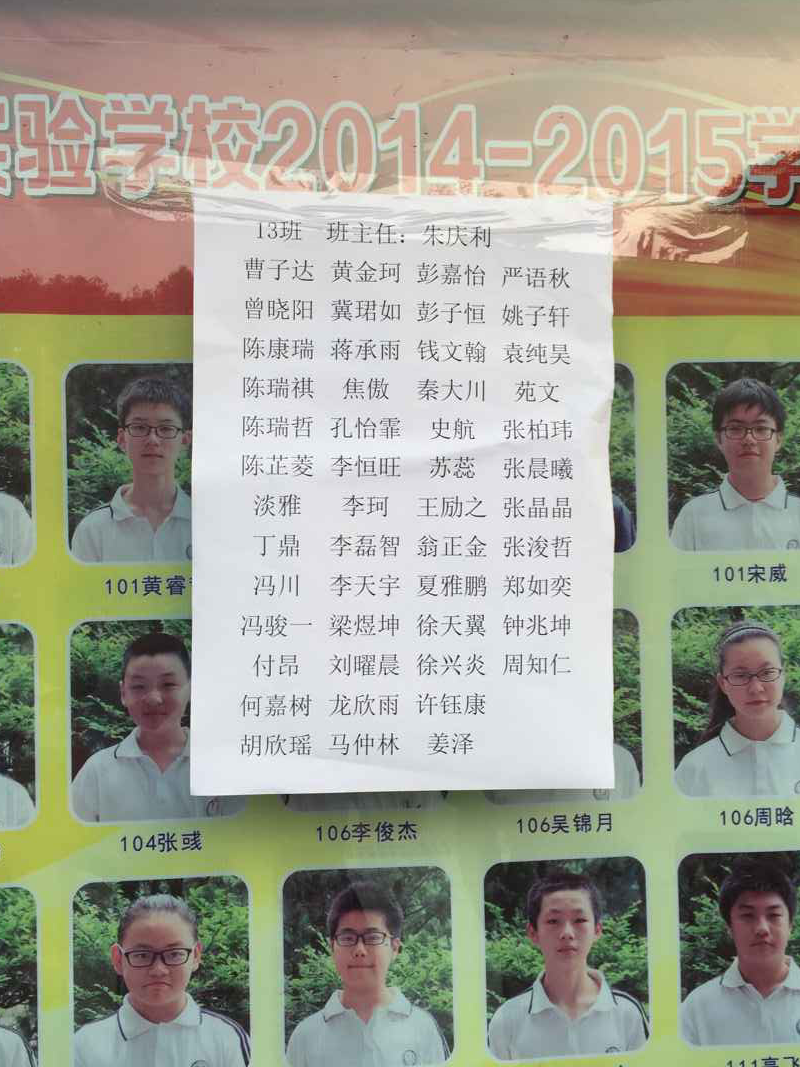 验学校2014-2015学
13班 班主任：朱庆利
曹子达 黄金珂 彭嘉怡 严语秋
曾晓阳 冀珺如 彭子恒 姚子轩
陈康瑞 蒋承雨 钱文翰 袁纯昊
陈瑞祺 焦傲 秦大川 苑文
陈瑞哲 孔怡霏 史航 张柏玮
陈芷菱 李恒旺 苏蕊 张晨曦
淡雅 李珂 王励之 张晶晶
丁鼎 李磊智 翁正金 张浚哲
冯川 李天宇 夏雅鹏 郑如奕
冯骏一 梁煜坤 徐天翼 钟兆坤
付昂 刘曜晨 徐兴炎 周知仁
何嘉树 龙欣雨 许钰康
胡欣瑶 马仲林 姜泽
101黄睿
101宋威
104张彧
106李俊杰
106吴锦月
106周晗